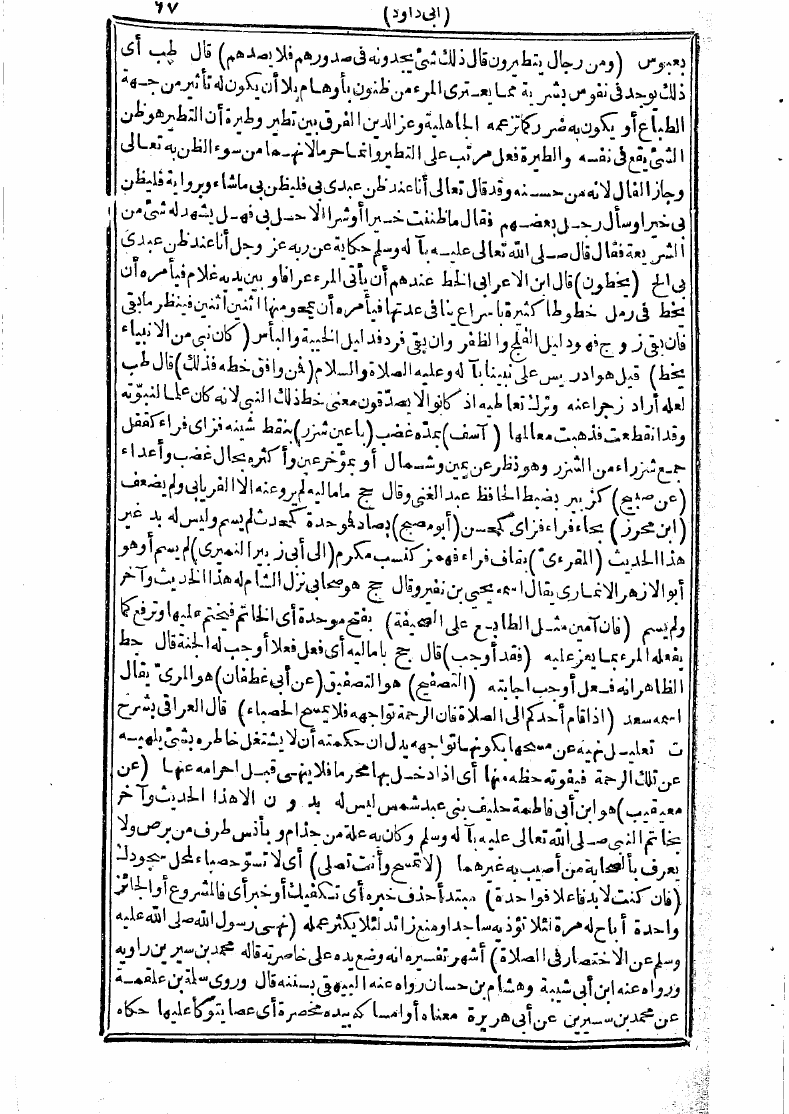 (ابى داود)
٦٧
بعبوس (ومن رجال يتطيرون قال ذلك شئ يجدونه فى صدورهم فلا يصدهم) قال طب أى
ذلك يوجد فى نفوس بشرية مما يعترى المرء من ظنون بأوهام بلا أن يكون له تأثير من جهة
الطباع أو يكون به ضر ركما تزعمه الجاهلية وعز الدين الفرق بين تطير وطيرة أن التطير هو ظن
الشئ يقع فى نفسه والطيرة فعل مرتب على التطير وانما حر مالانهما من سوء الظن به تعالى
وجاز الفال لانه من حسنه وقد قال تعالى أنا عند ظن عبدى بى فليظن بى ماشاء وبرواية فليظن
بى خيرا وسأل رجل بعضهم فقال ماظننت خيرا أو شرا الا حل بى فهل يشهد له شئ من
الشريعة فقال قال صلى الله تعالى عليه بآله وسلم حكاية عن ربه عز وجل أنا عند ظن عبدى
بى الخ (يخطون) قال ابن الاعرابى الخط عندهم أن يأتى المرء عرافا وبين يديه غلام فيأمره أن
يخط فى رمل خطوطا كثيرة باسراع ينا فى عدتها فيأمره أن يمحو منها اثنين أثنين فينظر مابقى
فان بقى زوج فهو دليل الفلج والظفر وان بقى فرد فدليل الخيبة واليأس (كان نبى من الانبياء
يخط) قيل هو ادريس على نبينا بآله وعليه الصلاة والسلام (فمن وافق خطه فذلك) قال طب
لعله أراد زجرا عنه وترك تعاطيه اذ كانوا لا يصدّقون معنى خط ذلك النبى لانه كان علما لنبوّته
وقد انقطعت فذهبت معالمها (آسف) بمدّه غضب (باعين شزر) بنقط شينه فزاى فراء كقفل
جمع شزراء من الشزر وهو نظر عن يمين وشمال أو بمؤخر عين وأكثره بحال غضب وأعداء
(عن صبيح) كزبير بضبط الحافظ عبد الغنى وقال حج ماماليه لم يرو عنه الا الفريابى ولم يضعف
(ابن محرز) بحاء فراء فزاى كمحسن (أبو مصبح) بصاد فموحدة كمحدث لم يسم وليس له بد غير
هذا الحديث (المقرءى) بقاف فراء فهمز كنسب مكرم (الى أبى زبير النميرى) لم يسم أو هو
أبو الازهر الانمارى يقال اسمه يحيى بن نفير وقال حج هو صحابى نزل الشام له هذا الحديث وآخر
ولم يسم (فان آمين مثل الطابع على الصحيفة) بفتح موحدة أى الخاتم فيختم عليها وترفع كما
يفعله المرء بما يعز عليه (فقد أوجب) قال حج باماليه أى فعل فعلا أوجب له الجنة قال حط
الظاهر انه فعل أوجب اجابته (التصفيح) هو التصفيق (عن أبى غطفان) هو المرى يقال
اسمه سعد (اذا قام أحدكم الى الصلاة فان الرحمة تواجهه فلا يمسح الحصباء) قال العراقى بشرح
ت تعليل نهيه عن مسحها بكونها تواجهه يدل ان حكمته أن لا يشتغل خاطره بشئ يلهيه
عن تلك الرحمة فيفوته حظه منها أى اذا دخل بها محر ما فلا ينهى قبل احرامه عنها (عن
معيقيب) هو ابن أبى فاطمة حليف بنى عبد شمس ليس له بد و ن الا هذا الحديث وآخر
بخاتم النبى صلى الله تعالى عليه بآله وسلم وكان به علة من جذام وبأنس طرف من برص ولا
يعرف بالصحابة من أصيب به غيرهما (لا تمسح وأنت تصلى) أى لا تسوّ حصباء لمحل سجودك
(فان كنت لا بد فاعلا فواحدة) مبتدأ حذف خبره أى تكفيك أو خبر أى فالمشروع أو الجائز
واحدة أباح له مرة لئلا تؤذيه ساجدا ومنع زائد لئلا يكثر عمله (نهى رسول الله صلى الله عليه
وسلم عن الاختصار فى الصلاة) أشهر تفسيره انه وضع يده على خاصرته قاله محمد بن سيرين راويه
ورواه عنه ابن أبى شيبة وهشام بن حسان رواه عنه البيهقى بسننه قال وروى سلمة بن علقمة
عن محمد بن سيرين عن أبى هريرة معناه أو امساكه بيده مخصرة أى عصا يتوكأ عليها حكاه